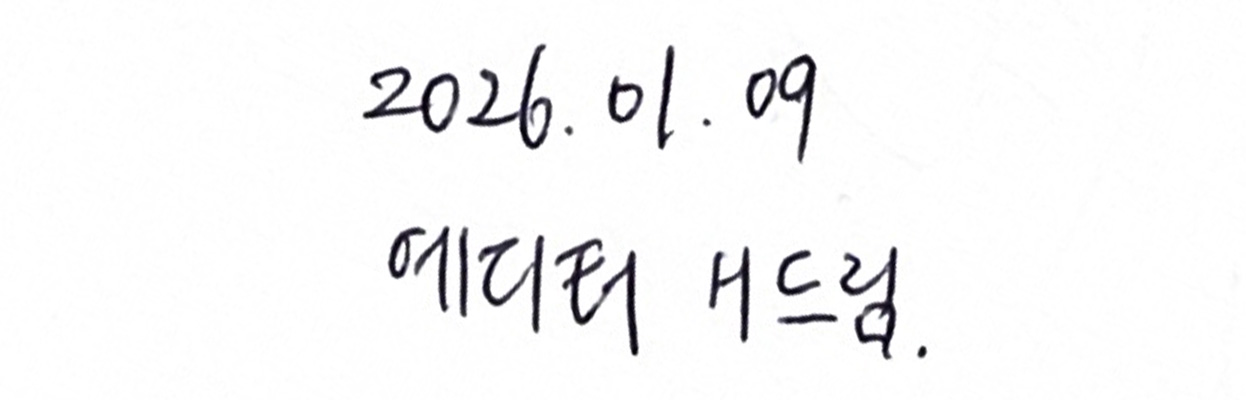 2026. 01. 09
에디터 H드림.